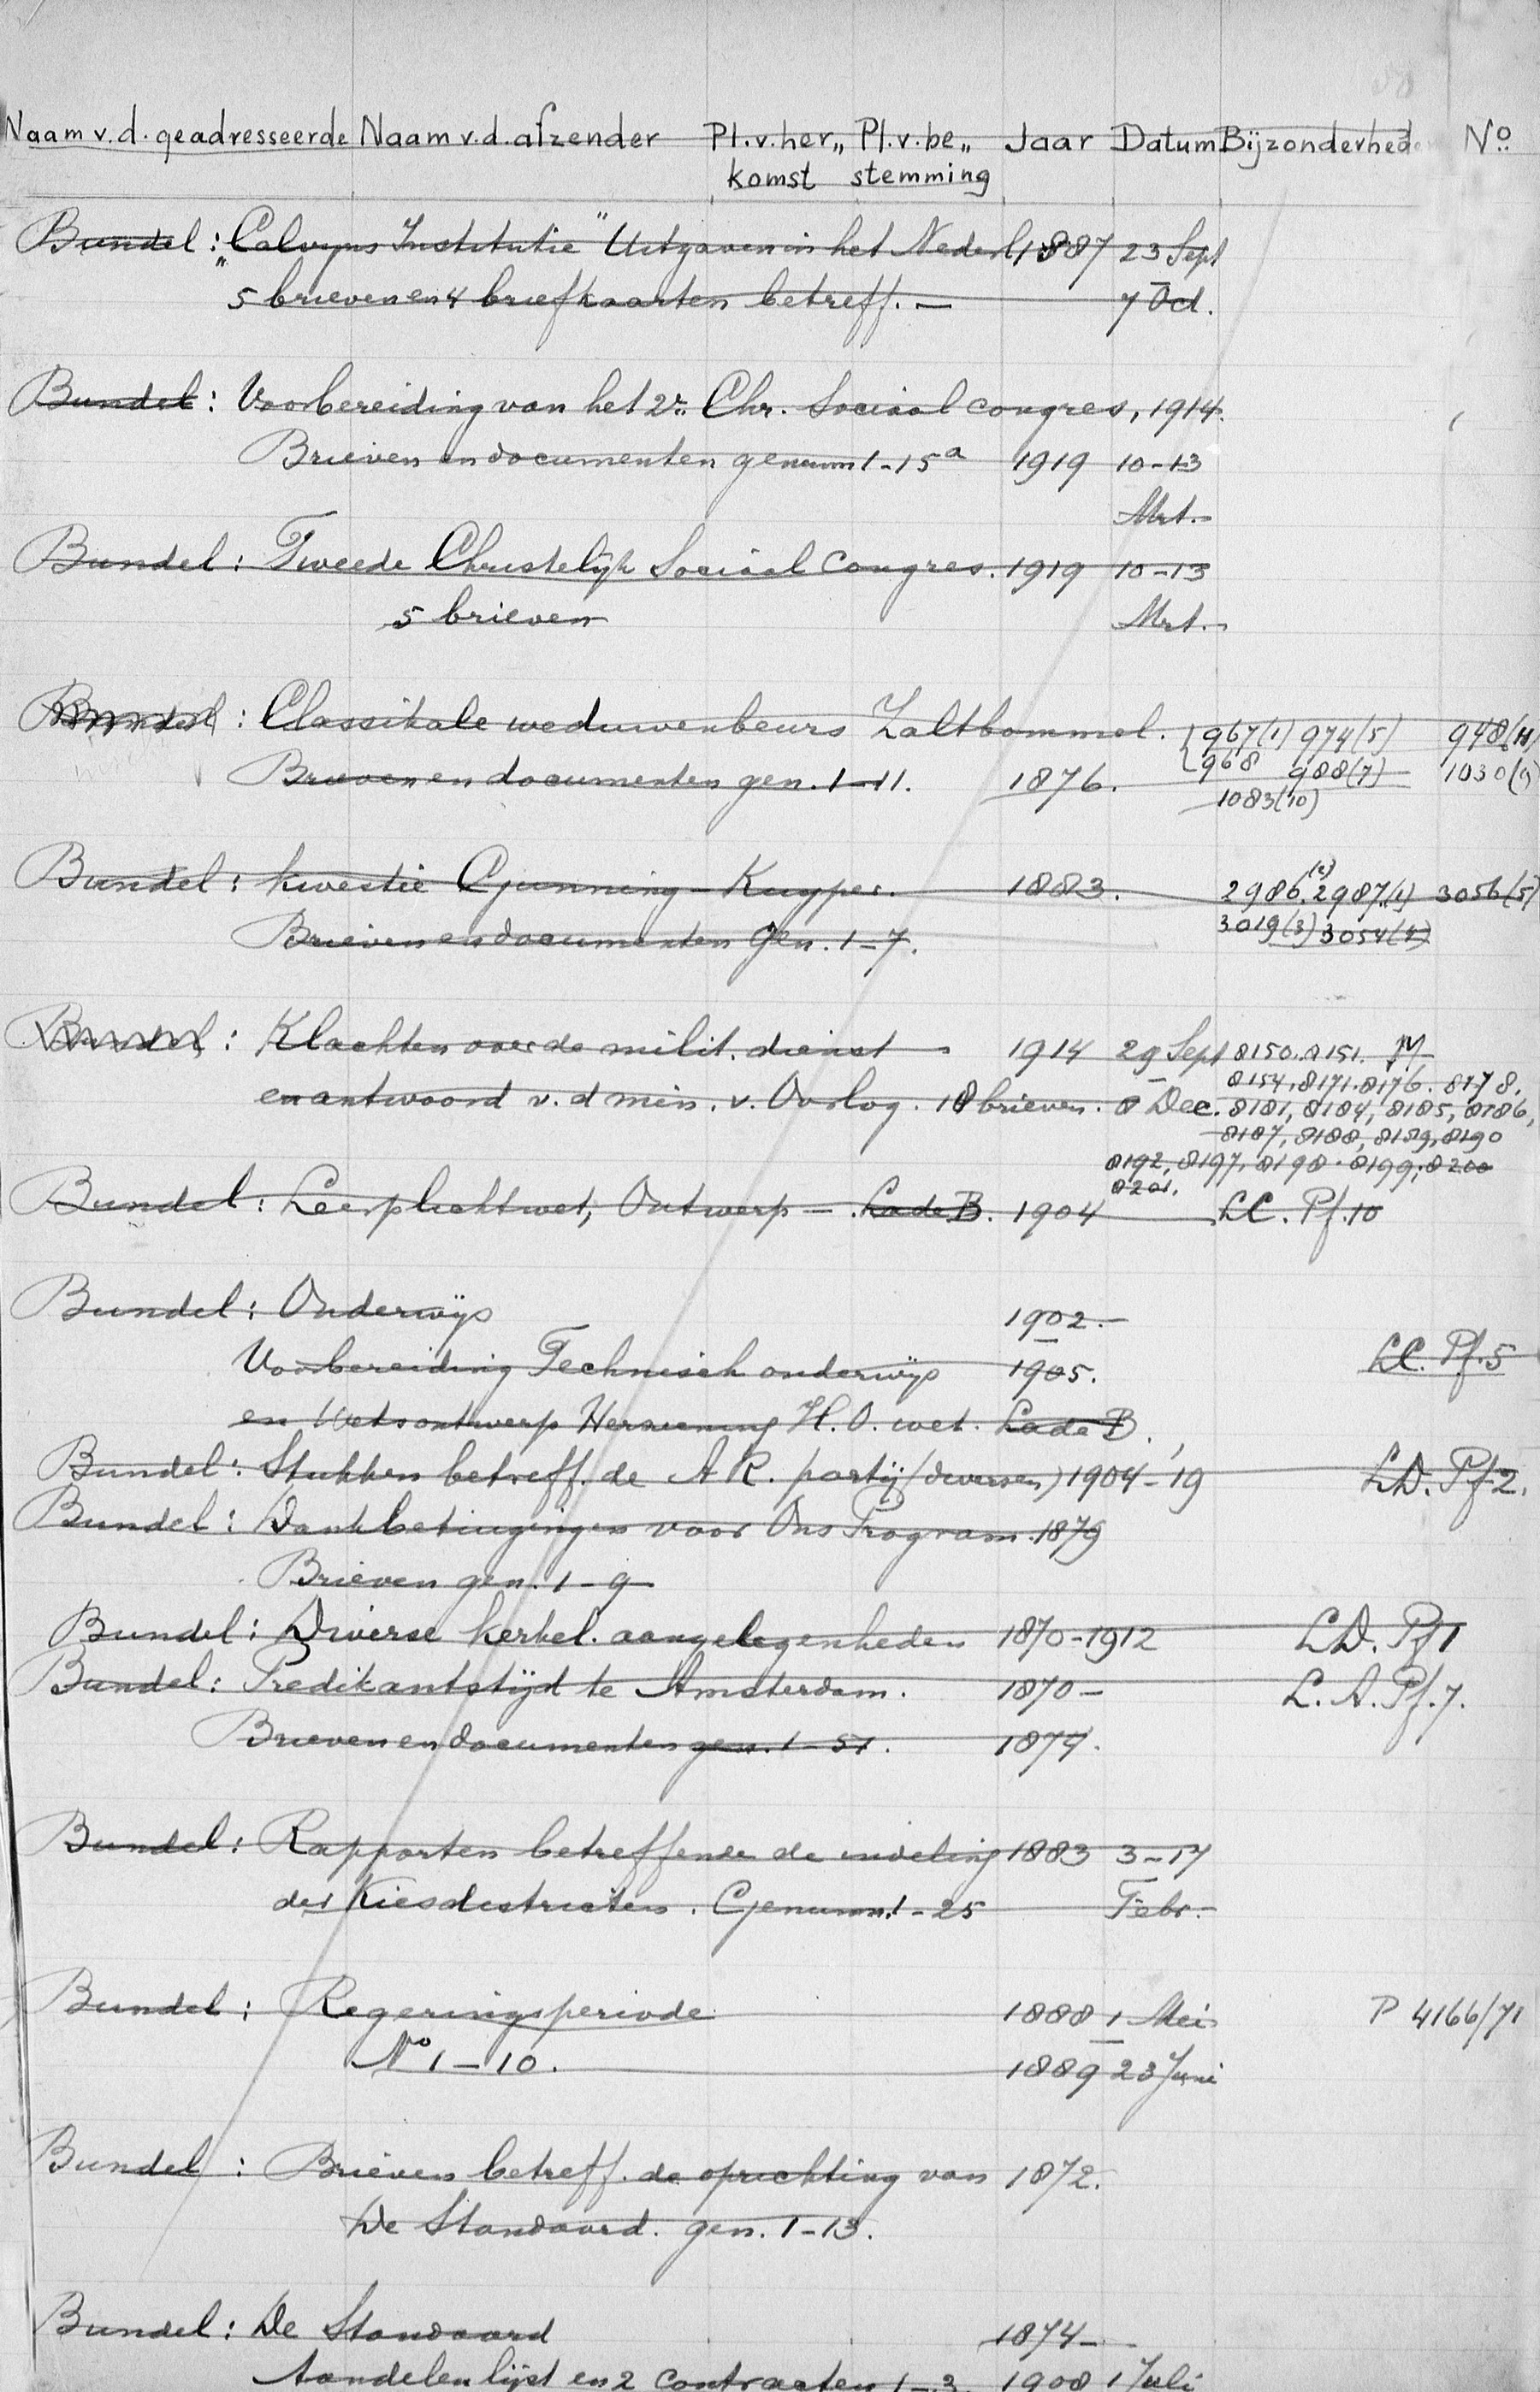 Naam v. d. geadresseerde Naam v. d. afzender Pl. v. her„ Pl. v. be„ Jaar Datum Bijzonderhed No
komst stemming
Bundel: „Calvijns Institutie" Uitgaven in het Nederl, 1887 23 Sept
5 brieven en 4 briefkaarten betreff. — 7 Oct.
Bundel: Voorbereiding van het 2e Chr. Sociaal congres, 1914.
Brieven en documenten genum 1-15a 1919 10-13
Mrt.
Bundel: Tweede Christelijk Sociaal Congres. 1919 10-13
5 brieven Mrt.
Bundel: Classikale weduwenbeurs Zaltbommel. 967(1) 974(5) 948(11)
Brieven en documenten gen. 1-11. 1876. 968 988(7) 1030(9)
1083(10)
Bundel: kwestie Gunning-Kuyper. 1883. 2986(2). 2987(1) 3056(5)
Brieven en documenten Gen. 1-7. 3019(3) 3054(4)
Bundel: Klachten over de milit. dienst 1914 29 Sept 8150. 8151.
8154, 8171. 8176. 8178.
en antwoord v. d min. v. Oorlog. 18 brieven. 8 Dec. 8181, 8184, 8185, 8186,
8187, 8188, 8189, 8190
8192, 8197, 8198. 8199, 8200
8201.
Bundel: Leerplichtwet, Ontwerp — Lade B. 1904 LC. Pf. 10
Bundel: Onderwijs 1902.—
Voorbereiding Technisch onderwijs 1905. LC. Pf. 5
en Wetsontwerp Herziening H. O. wet. Lade B.
Bundel: Stukken betreff. de A R. partij (diversen) 1904-19 LD. Pf 2.
Bundel: Dankbetuigingen voor Ons Program. 1879
Brieven gen. 1-9
Bundel: Diverse kerkel. aangelegenheden 1870-1912 LD. Pf 1
Bundel: Predikantstijd te Amsterdam. 1870— L. A. Pf. 7.
Brieven en documenten gen. 1-51. 1874.
Bundel: Rapporten betreffende de indeling 1883 3-17
der Kiesdistricten. Genumm. 1-25 Febr.
Bundel: Regeringsperiode 1888 1 Mei P 4166/71
No 1-10. 1889 23 Juni
Bundel: Brieven betreff. de oprichting van 1872.
De Standaard. gen. 1-13.
Bundel: De Standaard 1874—
Aandelenlijst en 2 contracten 1-3. 1908 1 Juli